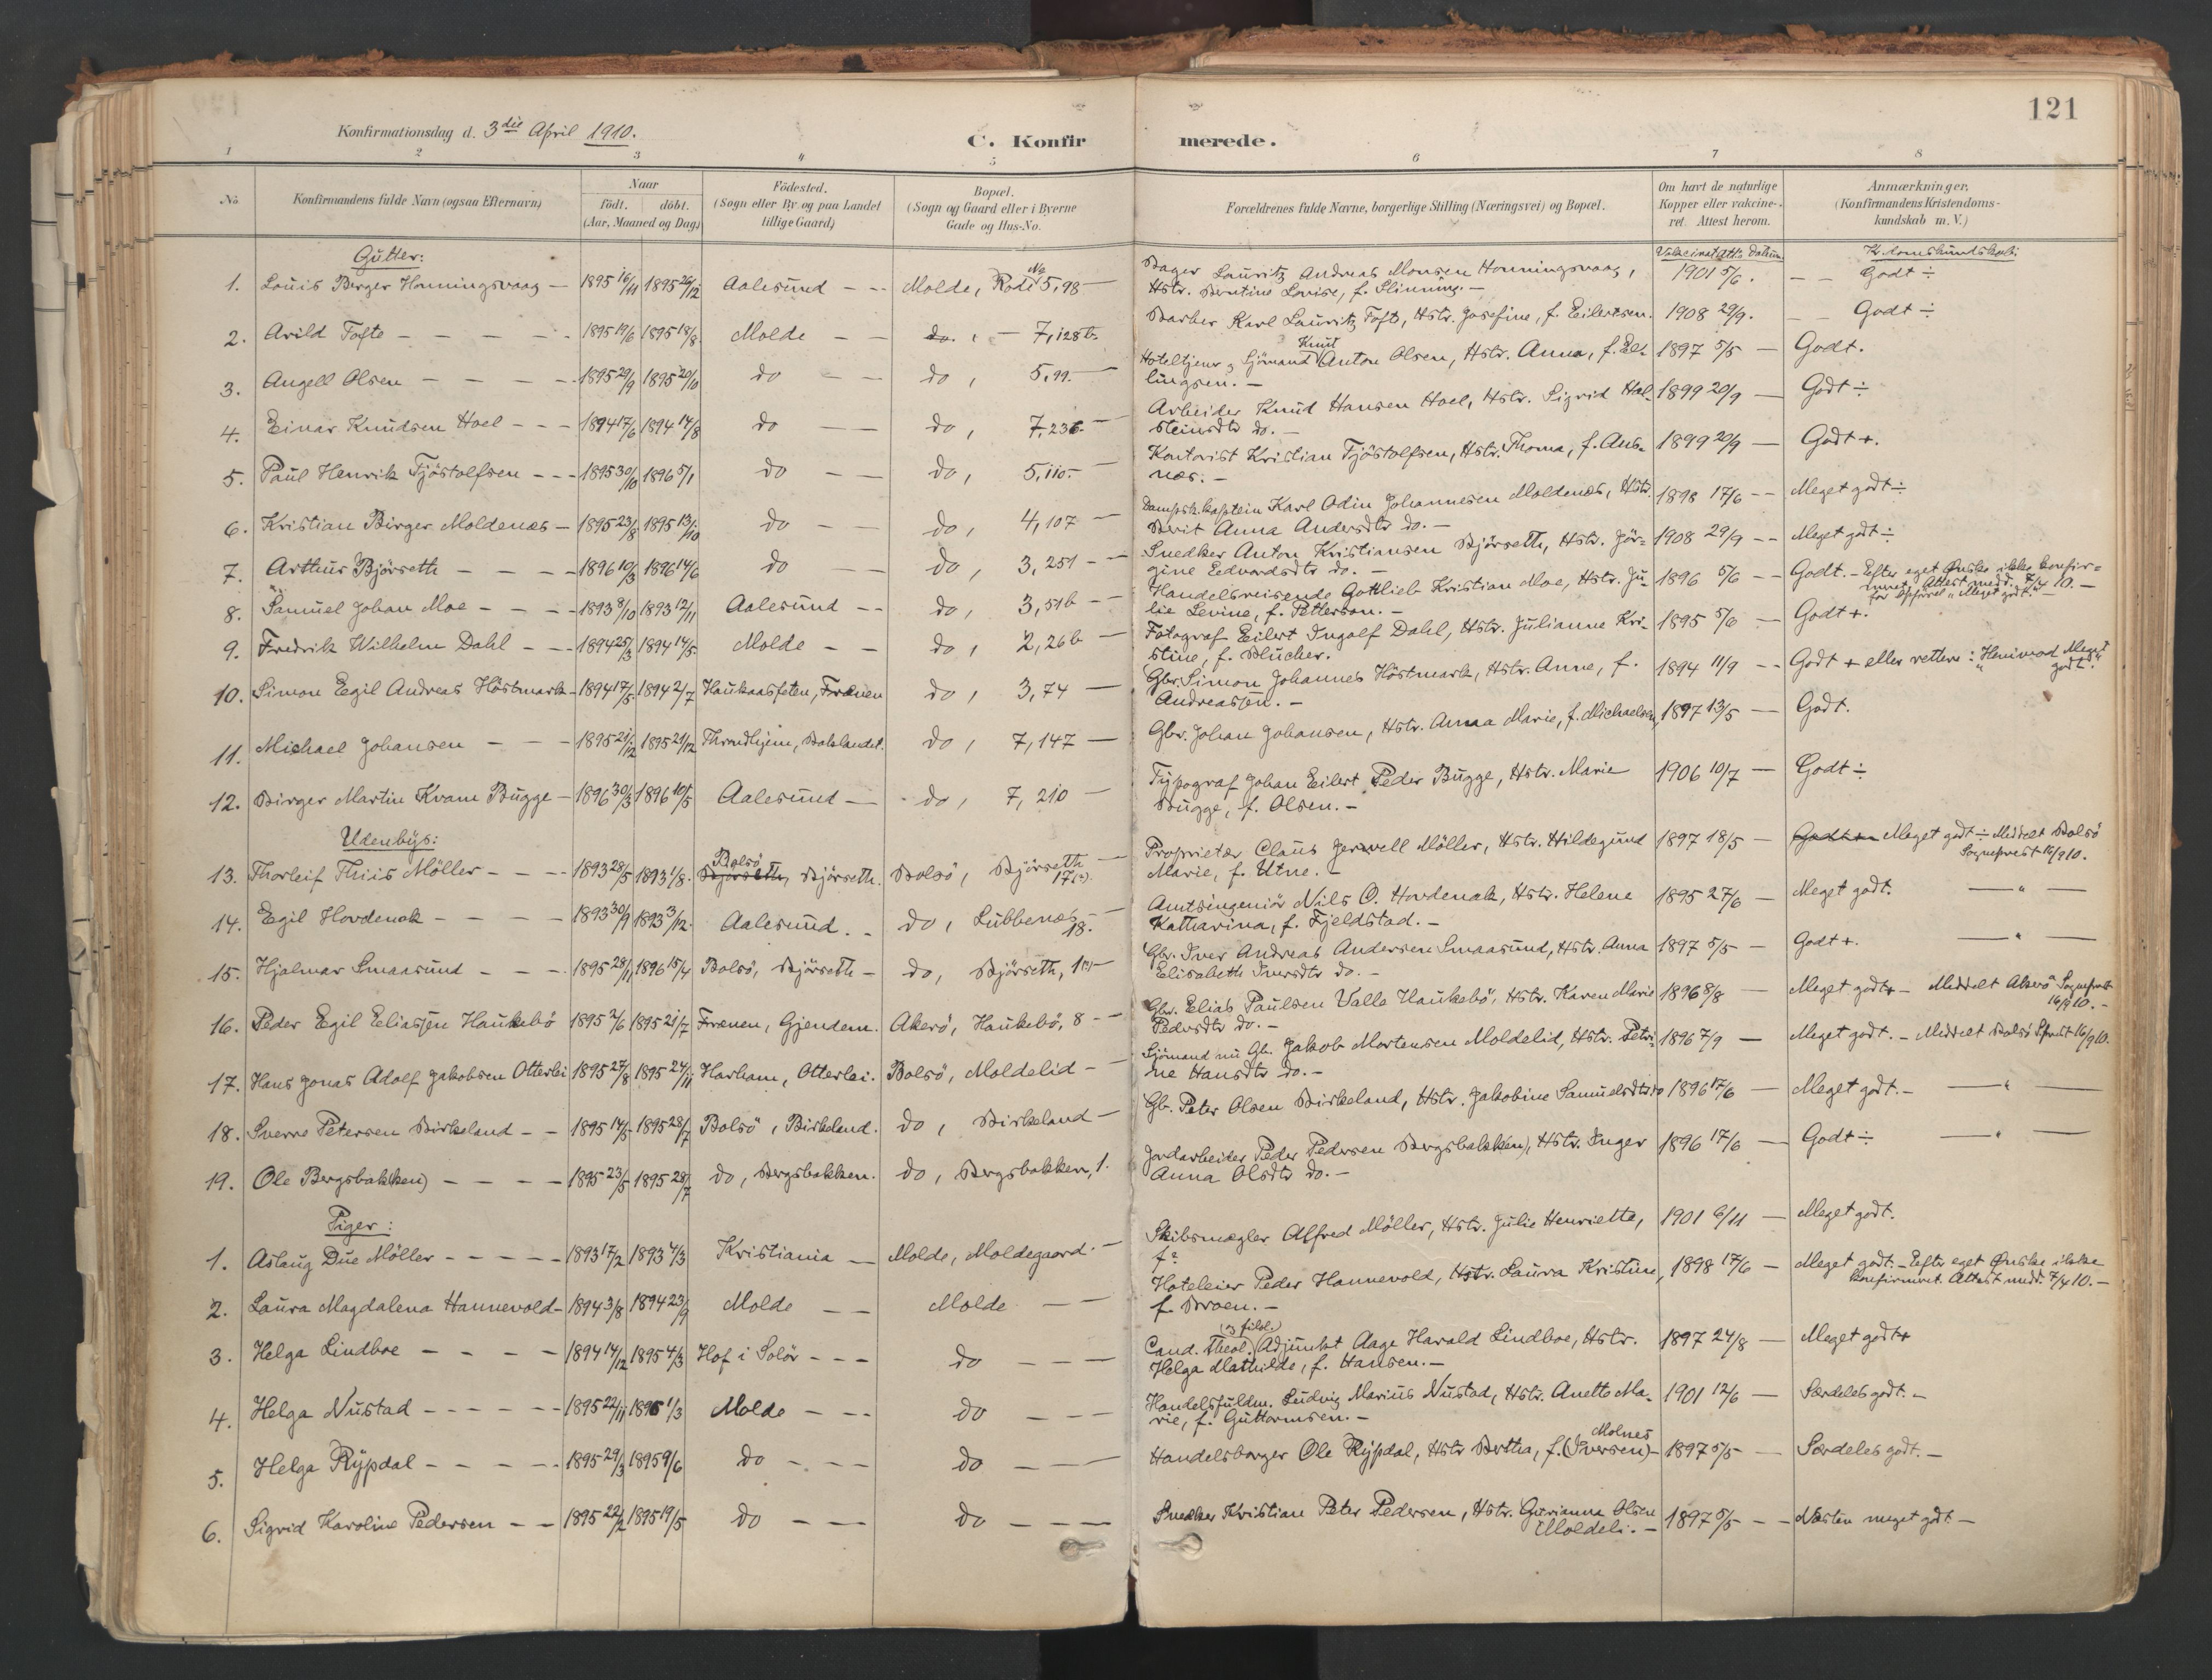 121
Konfirmationsdag d. 3die April 1910.
C. Konfirmerede.
1 2 3 4 5 6 7 8
No. Konfirmandens fulde Navn (ogsaa Efternavn) Naar födt. döbt. (Aar, Maaned og Dag) Födested. (Sogn eller By og paa Landet tillige Gaard) Bopæl. (Sogn og Gaard eller i Byerne Gade og Hus-No. Forældrenes fulde Navne, borgerlige Stilling (Næringsvei) og Bopæl. Om havt de naturlige Kopper eller vakcineret. Attest herom. Anmærkninger. (Konfirmandens Kristendomskundskab m. V.)
Gutter: Vakcinat. Att's Datum K.domskundskab:
1. Louis Berger Honningsvaag — 1895 16/11 1895 26/12 Aalesund — Molde, Rode No 5, 98 — Bager Lauritz Andreas Monsen Honningsvaag, 1901 5/6. — Godt ÷
Hstr. Berntine Lovise, f. Slinning. —
2. Arild Tofte — 1895 19/6 1895 18/8 Molde — do. , — 7, 128 b. Barber Karl Lauritz Toft, Hstr. Josefine, f. Eilertsen. 1908 29/9. — Godt ÷
3. Angell Olsen — 1895 29/9 1895 20/10 do — do, 5, 99. — Hoteltjener, Sjömand Knut Anton Olsen, Hstr. Anna, f. El- 1897 5/5 — Godt.
lingsen. —
4. Einar Knudsen Hoel — 1894 17/6 1894 14/8 do — do, 7, 236. — Arbeider Knud Hansen Hoel, Hstr. Sigrid Hal- 1899 20/9 — Godt ÷
steinsdtr do. —
5. Paul Henrik Fjöstolfsen — 1895 30/10 1896 5/1 do — do, 5, 110. — Kontorist Kristian Fjöstolfsen, Hstr. Thoma, f. Aus- 1899 20/9 — Godt +.
nes. —
6. Kristian Birger Moldenæs — 1895 23/8 1895 13/10 do — do, 4, 107 — Dampsk. kaptein Karl Odin Johannesen Moldenæs, Hstr. 1898 17/6 — Meget godt ÷
Berit Anna Andersdtr do. —
7. Arthur Björseth — 1896 10/3 1896 14/6 do — do, 3, 251 — Snedker Anton Kristiansen Björseth, Hstr. Jör- 1908 29/9 — Meget godt ÷
gine Edvardsdtr do. —
8. Samuel Johan Moe — 1893 9/10 1893 12/11 Aalesund — do, 3, 51 b — Handelsreisende Gottlieb Kristian Moe, Hstr. Ju- 1896 5/6 — Godt. — Efter eget Ønske ikke konfir-
lie Levine, f. Petterson. — meret. Attest medd. 7/4 10. —
9. Fredrik Wilhelm Dahl — 1894 25/3 1894 14/5 Molde — do, 2, 26 b — Fotograf Eilert Ingolf Dahl, Hstr. Julianne Kri- 1895 5/6 — Godt +.
stine, f. Blucher.
10. Simon Egil Andreas Höstmark — 1894 17/5 1894 2/7 Haukaasfeten, Frænen do, 3, 74 — Gbr. Simon Johannes Höstmark, Hstr. Anne, f. 1894 11/9 — Godt + eller rettere: "Henimod Meget godt."
Andreassen. —
11. Michael Johansen — 1895 21/12 1895 21/12 Throndhjem, Baklandet. do, 7, 147 — Gbr. Johan Johansen, Hstr. Anna Marie, f. Michaelsen, 1897 13/5 — Godt.
12. Birger Martin Kvam Bugge — 1896 30/3 1896 10/5 Aalesund — do, 7, 210 — Typograf Johan Eilert Peder Bugge, Hstr. Marie 1906 10/7 — Godt ÷
Bugge, f. Olsen. —
Udenbys:
13. Thorleif Thiis Möller — 1893 28/5 1893 1/8. Bolsö Björseth, Björseth. Bolsö, Björseth 17(?) — Proprietær Claus Jerwell Möller, Hstr. Hildegund 1897 18/5 — Godt + Meget godt ÷ Meddelt Bolsö
Marie, f. Utne. — Sogneprest 16/9 10.
14. Egil Hovdenak — 1893 30/9 1893 3/12. Aalesund. — do, Lubbenæs 18. — Amtsingeniör Nils O. Hovdenak, Hstr. Helene 1895 27/6 — Meget godt. — " —
Katharina, f. Fjeldstad. —
15. Hjalmar Smaasund — 1895 28/11 1896 15/4 Bolsö, Björseth — do, Björseth, 1 — Gbr. Iver Andreas Andersen Smaasund, Hstr. Anna 1897 5/5 — Godt +. — " —
Elisabeth Iversdtr do. —
16. Peder Egil Eliassen Haukebö 1895 2/6 1895 21/7 Frænen, Gjendem. Akerö, Haukebö, 8 — Gbr. Elias Paulsen Valle Haukebö, Hstr. Karen Marie 1896 8/8 — Meget godt + — Meddelt Akerö Sogneprest 16/9 10. —
Pedersdtr do. —
17. Hans Jonas Adolf Jakobsen Otterlei 1895 27/8 1895 24/11 Harham, Otterlei. Bolsö, Moldelid — Sjömand nu Gb. Jakob Mortensen Moldelid, Hstr. Petri- 1896 7/9 — Meget godt. — Meddelt Bolsö Sprest 16/9 10.
ne Hansdtr do. —
18. Sverre Petersen Birkeland — 1895 14/5 1895 28/7 Bolsö, Birkeland. do, Birkeland — Gb. Peter Olsen Birkeland, Hstr. Jakobine Samuelsdtr do 1896 17/6 — Meget godt. — " —
19. Ole Bergsbak(ken) — 1895 23/5 1895 28/7 do, Bergsbakken. do, Bergsbakken, 1. Jordarbeider Peder Pedersen Bergsbak(ken), Hstr. Inger 1896 17/6 — Godt ÷ — " —
Anna Olsdtr do. —
Piger:
1. Aslaug Due Möller — 1893 17/2 1893 4/3 Kristiania — Molde, Moldegaard. — Skibsmægler Alfred Möller, Hstr. Julie Henriette, 1901 6/11 — Meget godt.
f?
2. Laura Magdalena Hannevold — 1894 3/8 1894 23/9 Molde — Molde — Hoteleier Peder Hannevold, Hstr. Laura Kristine, 1898 17/6 — Meget godt. — Efter eget Ønske ikke
f. Broen. — konfirmeret. Attest medd. 7/4 10. —
3. Helga Lindboe — 1894 14/12 1895 4/3 Hof i Solör — do — Cand. Theol. (og filol.) Adjunkt Aage Harald Lindboe, Hstr. 1897 24/8 — Meget godt +
Helga Mathilde, f. Hansen. —
4. Helga Nustad — 1895 22/11 1896 1/3 Molde — do — Handelsfuldm. Ludvig Marius Nustad, Hstr. Anette Ma- 1901 12/6 — Særdeles godt. —
rie, f. Guttormsen. —
5. Helga Rypdal — 1895 29/3 1895 9/6 do — do — Handelsborger Ole Rypdal, Hstr Bertha, f. (Iversen) Molnes — 1897 5/5 — Særdeles godt. —
6. Sigrid Karoline Pedersen — 1895 22/2 1895 19/5 do — do — Snedker Kristian Peter Pedersen, Hstr. Gurianna Olsen 1897 5/5 — Næsten meget godt —
Moldeli. —